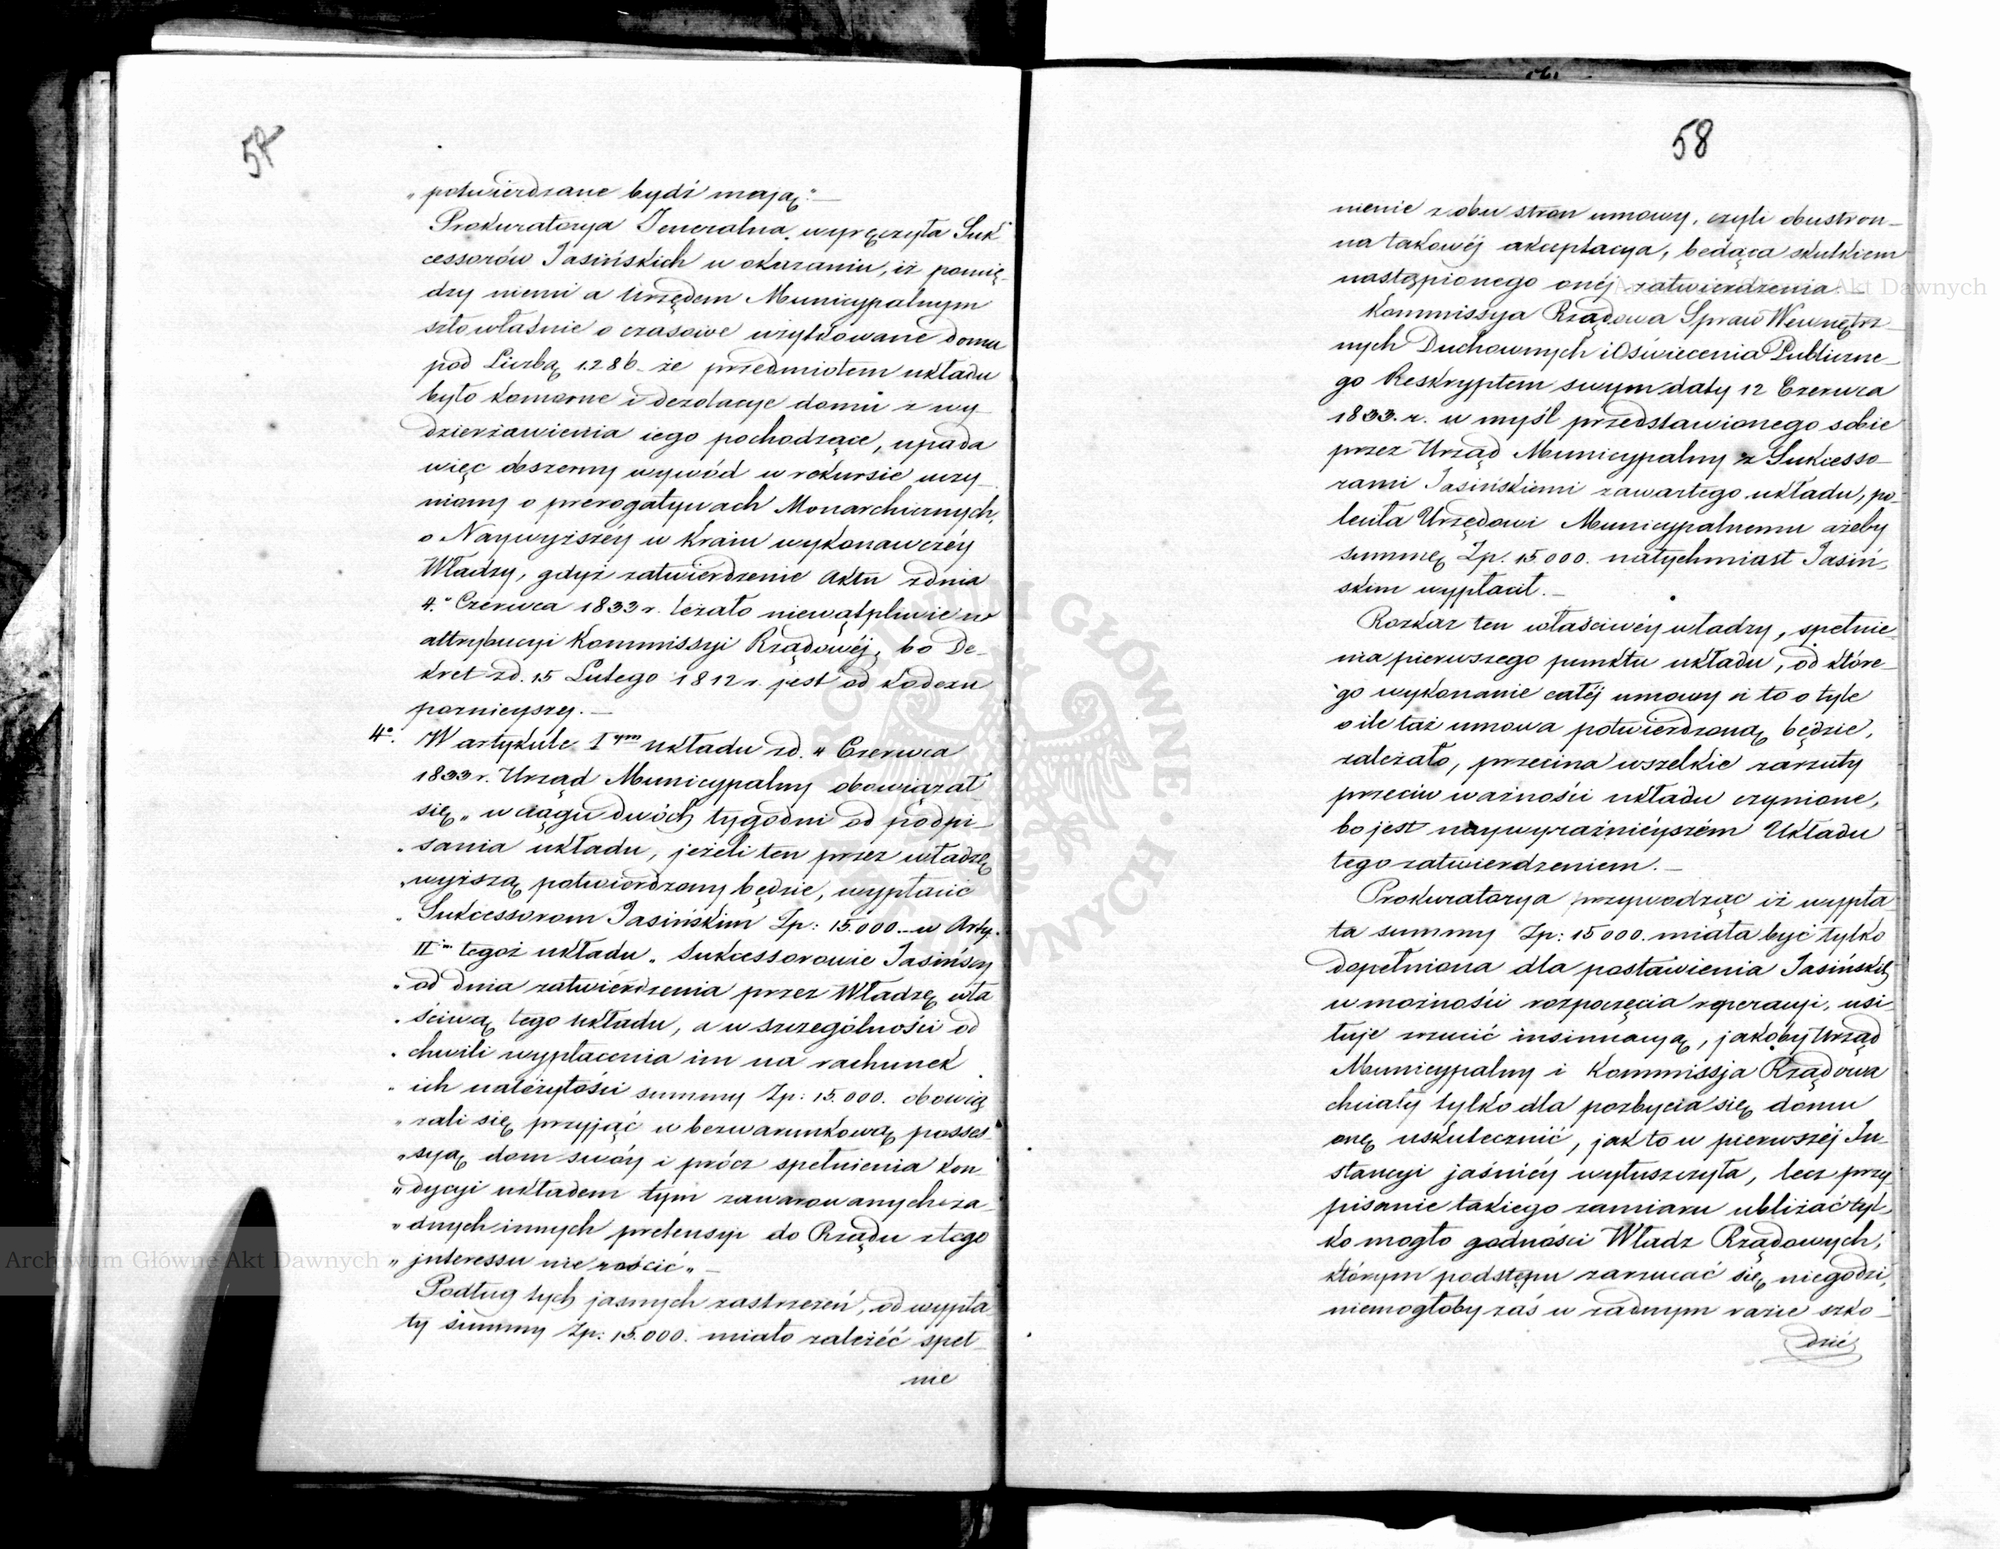 57
„potwierdzane bydź mają“—
Prokuratorya Jeneralna, wyręczyła Suk
cessorów Jasińskich w okazaniu, iż pomię-
dzy niemi a Urzędem Municypalnym
szło właśnie o czasowe użytkowane domu
pod Liczbą 1286. że przedmiotem układu
było komorne i dezolacye domu z wy
dzierżawienia iego pochodzące, upada
więc obszerny wywód w rekursie uczy-
niony o prerogatywach Monarchicznych,
o Naywyższéy w Kraiu wykonawczéy
Władzy, gdyż zatwierdzenie Aktu z dnia
4.° Czerwca 1833 r. leżało niewątpliwie w
attrybucyi Kommissyi Rządowéj, bo De-
kret zd. 15 Lutego 1812 r. jest od Kodexu
poznieyszy.—
4°. W artykule I ym układu zd. 4 Czerwca
1833 r. Urząd Municypalny obowiązał
się „w ciągu dwóch tygodni od podpi-
„sania układu, jeżeli ten przez władzę
„wyższą potwierdzony będzie, wypłacić
„Sukcessorom Jasińskim Zp: 15.000.— w Arty.
II m tegoż układu „Sukcessorowie Jasińscy
„od dnia zatwierdzenia przez Władzę wła
„ściwą tego układu, a w szczególności od
„chwili wypłacenia im na rachunek
„ich należytości summy Zp: 15.000. obowią
„zali się przyjąć w bezwarunkową posses-
„syą dom swóy i prócz spełnienia kon
„dycyi układem tym zawarowanych ża-
„dnych innych pretensyi do Rządu z tego
„interessu nie rościć„—
Podług tych jasnych zastrzeżeń, od wypła
ty summy Zp: 15.000. miało zależéć speł-
nie
58
nienie z obu stron umowy, czyli obustron-
na takowéj akceptacya, będąca skutkiem
nastąpionego onéj zatwierdzenia.—
Kommissya Rządowa Spraw Wewnętrz-
nych Duchownych i Oświecenia Publiczne-
go Reskryptem swym daty 12 Czerwca
1833. r. w myśl przedstawionego sobie
przez Urząd Municypalny z Sukcesso-
rami Jasińskiemi zawartego układu, po-
leciła Urzędowi Municypalnemu ażeby
summę Zp. 15.000. natychmiast Jasiń-
skim wypłacił.—
Rozkaz ten właściwéy władzy, spełnie-
nia pierwszego punktu układu, od które-
go wykonanie całéj umowy i to o tyle
o ile taż umowa potwierdzoną będzie,
zależało, przecina wszelkie zarzuty
przeciw ważności układu czynione,
bo jest naywyraźniéyszém Układu
tego zatwierdzeniem.—
Prokuratorya przywodząc iż wypła-
ta summy Zp: 15000. miała być tylko
dopełniona dla postawienia Jasińskich
w możności rozpoczęcia operacyi, usi-
łuje rzucić insinuacyą, jakoby Urząd
Municypalny i Kommissja Rządowa
chciały tylko dla pozbycia się domu
onę uskutecznić, jak to w pierwszéj In-
stancyi jaśniéy wyłuszczyła, lecz przy-
pisanie takiego zamiaru ubliżać tyl-
ko mogło godności Władz Rządowych,
którym podstępu zarzucać się niegodzi,
niemogłoby zaś w żadnym razie szko-
dzić
Archiwum Główne Akt Dawnych